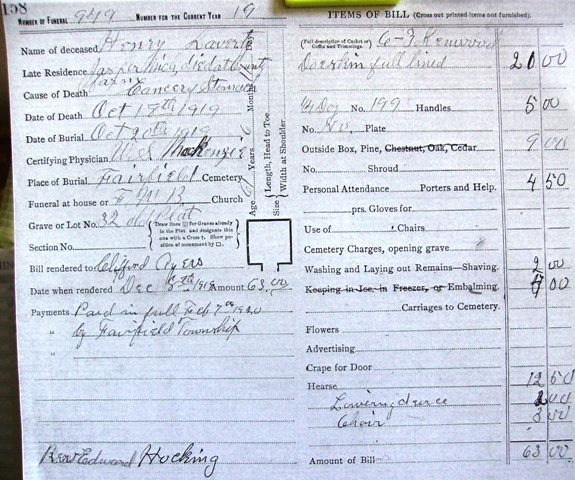 158
NUMBER OF FUNERAL 949 NUMBER FOR THE CURRENT YEAR 19
Name of deceased Henry Laverty
Late Residence Jasper Mich, died at County
farm
Cause of Death Cancery Stomach
Date of Death Oct 18th 1919
Date of Burial Oct 20th 1919
Certifying Physician W. S. Mackenzie
Place of Burial Fairfield Cemetery
Funeral at house or Church
Grave or Lot No. 32 old plat
Draw lines for Graves already in the Plot and designate this one with a Cross †. Show position of monument by □.
Section No.
Age Years Months
Size Length, Head to Toe
Width at Shoulder
Bill rendered to Clifford Ayers
Date when rendered Dec 8th 1919 Amount 63.00
Payments Paid in full Feb 7th 1920
" by Fairfield Township
"
Rev Edward Hocking
ITEMS OF BILL (Cross out printed items not furnished).
(Full description of Casket or Coffin and Trimmings.) 6-3 Kenwood
Doeskin full lined 20 00
No. 199 Handles 5 00
No. Plate
Outside Box, Pine, Chestnut, Oak, Cedar 9 00
No. Shroud
Personal Attendance Porters and Help. 4 50
prs. Gloves for
Use of Chairs
Cemetery Charges, opening grave
Washing and Laying out Remains—Shaving. 2 00
Keeping in Ice, in Freezer, or Embalming. 00
Carriages to Cemetery.
Flowers
Advertising
Crape for Door
Hearse 12 50
Lowering device 00
Choir 3 00
Amount of Bill 63 00